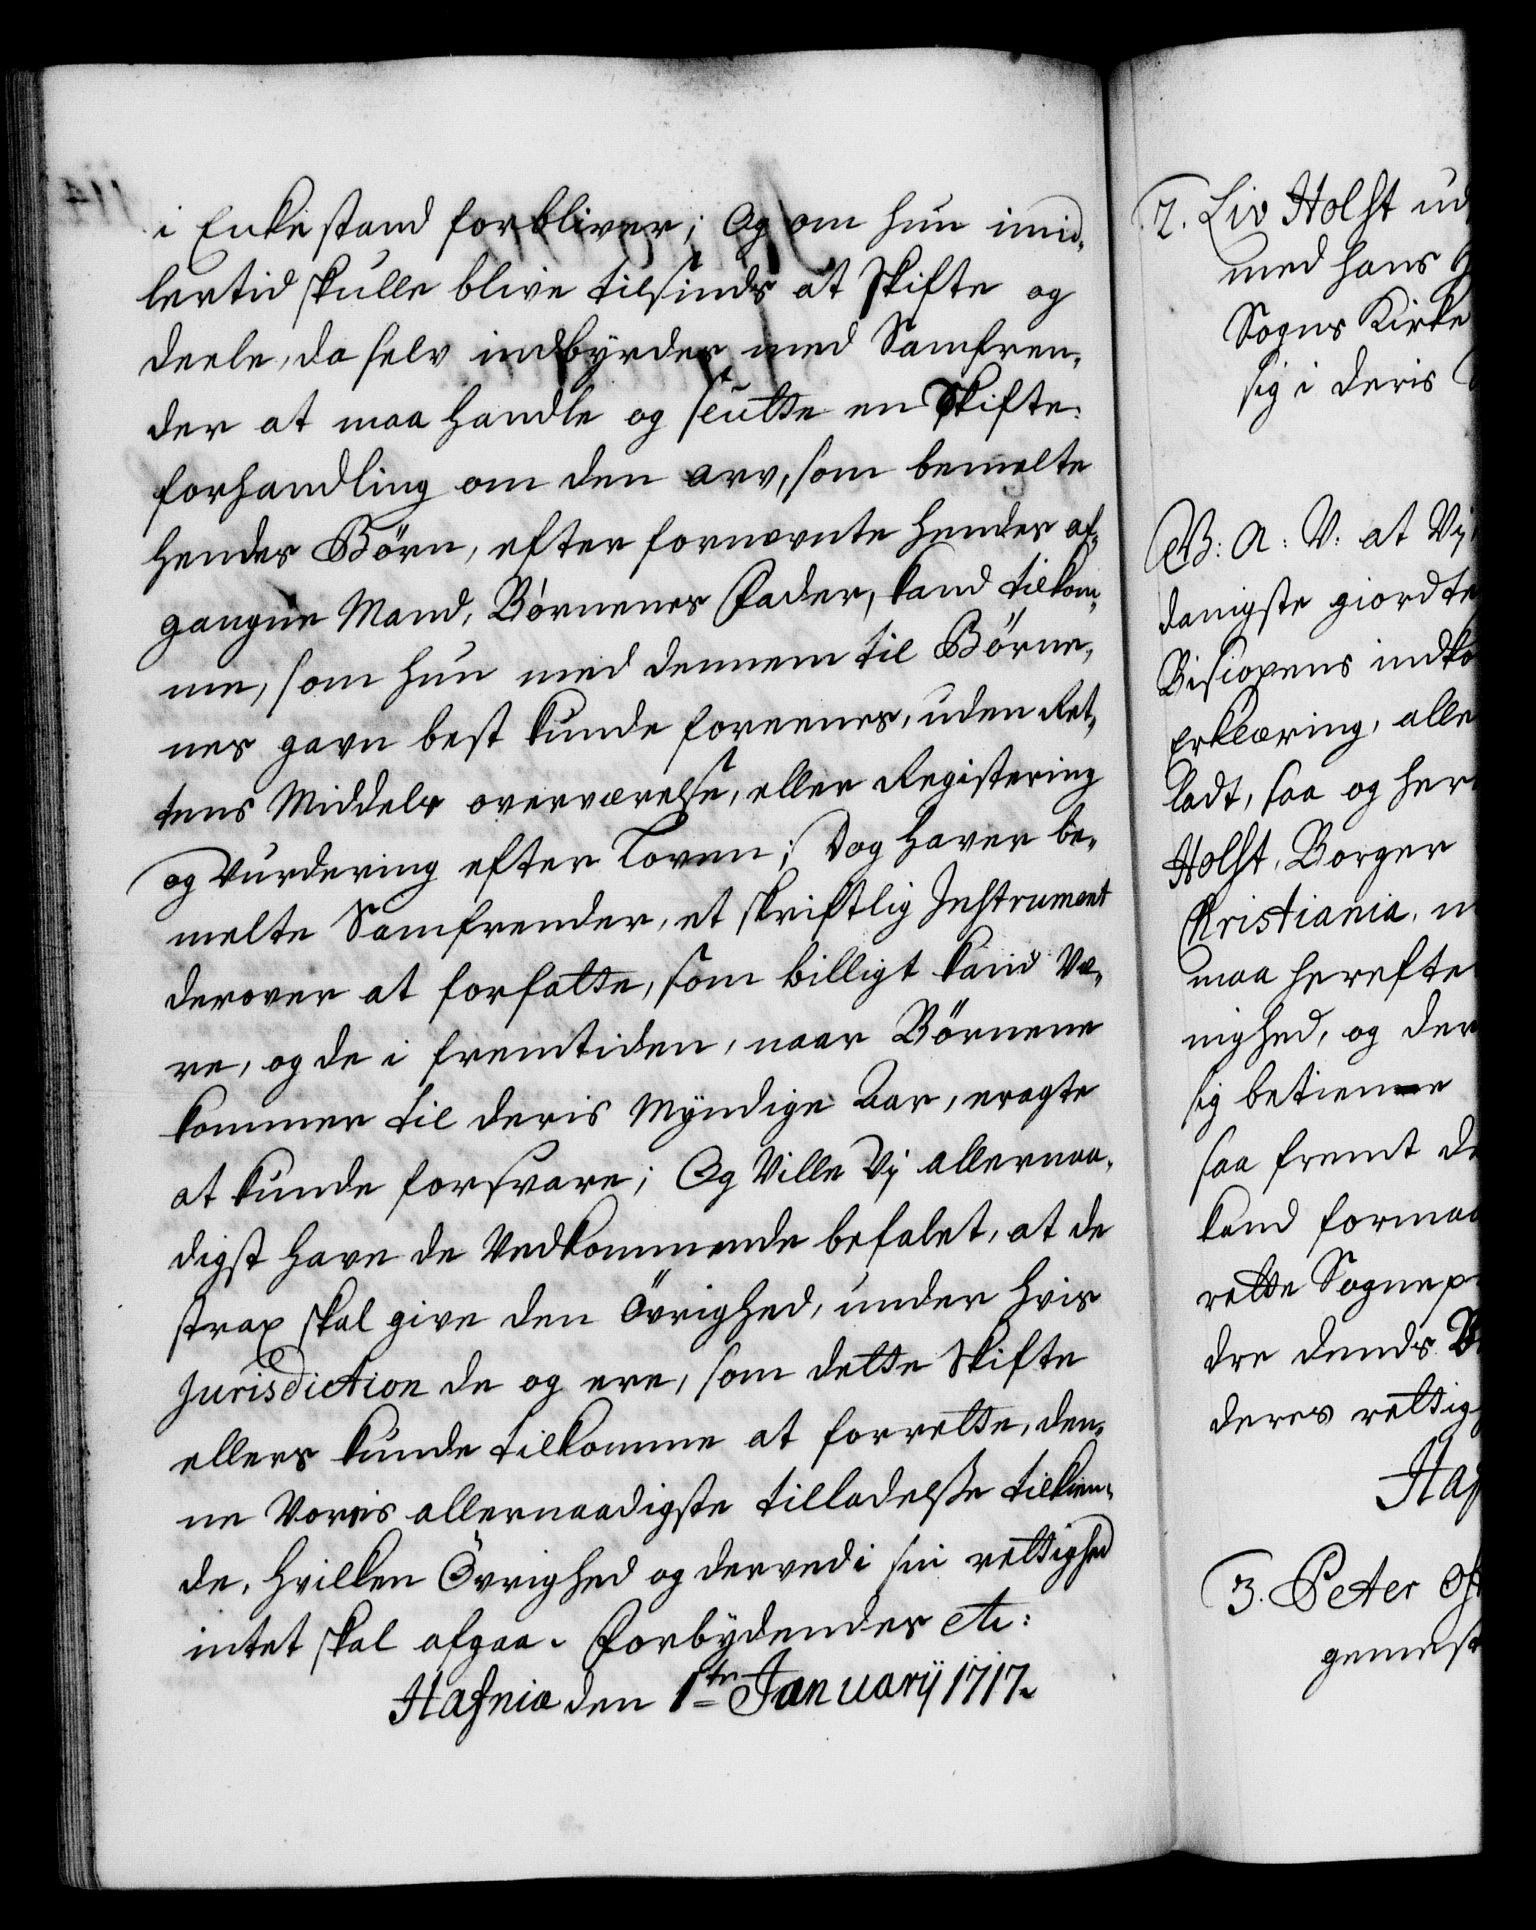 i Enke stand forbliver; Og om hun imid,
lertid skulle blive tilsinds at Skifte og
deele, da selv indbyrdes med Samfren,
der at maa handle og slutte en Skifte,
forhandling om den arv, som bemelte
hendes Börn, efter fornevnte hendes af,
gangne Mand, Börnenes Fader, kand tilkom,
me, som hun med dennem til Börne,
nes gavn best kunde foreenes, uden Ret,
tens Middels overværelse, eller Registering
og Vurdering efter Loven; Dog haver be,
melte Samfrender, et skriftlig Instrument
derover at forfatte, som billigt kand Væ,
re, og de i fremtiden, naar Börnene
kommer til deris Myndige Aar, eragte
at kunde forsvare; Og Ville Vj allernaa,
digst have de Vedkommende befalet, at de
strax skal give den Övrighed, under hvis
Jurisdiction de og ere, som dette Skifte
ellers kunde tilkomme at forrette, den,
ne Voris allernaadigste tilladelße tilkien,
de, hvilken Övrighed og derved i sin rettighed
intet skal afgaa. Forbydendes etc:
Hafnia den 1te January 1717.
2. Liv Holst ud
med hans
Sogns Kirke
sig i deris
G: A: V: at Vj
danigste giordte
Biscopens indko
Erklæring, alle
ladt, saa og her
Holst, Borger
Christiania, m
maa herefte
nighed, og der
sig betienne
saa fremt de
kand formaa
rette Sognep
dre dends
deres rettig
Haf
3. Peter
gemest